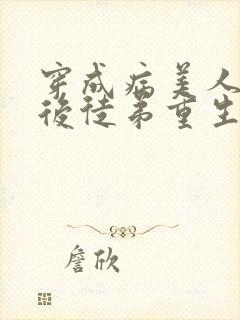 穿成病美人
後徒弟重生
詹欣